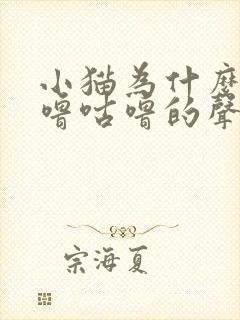 小猫為什麼
嚕咕嚕的聲
宗海夏